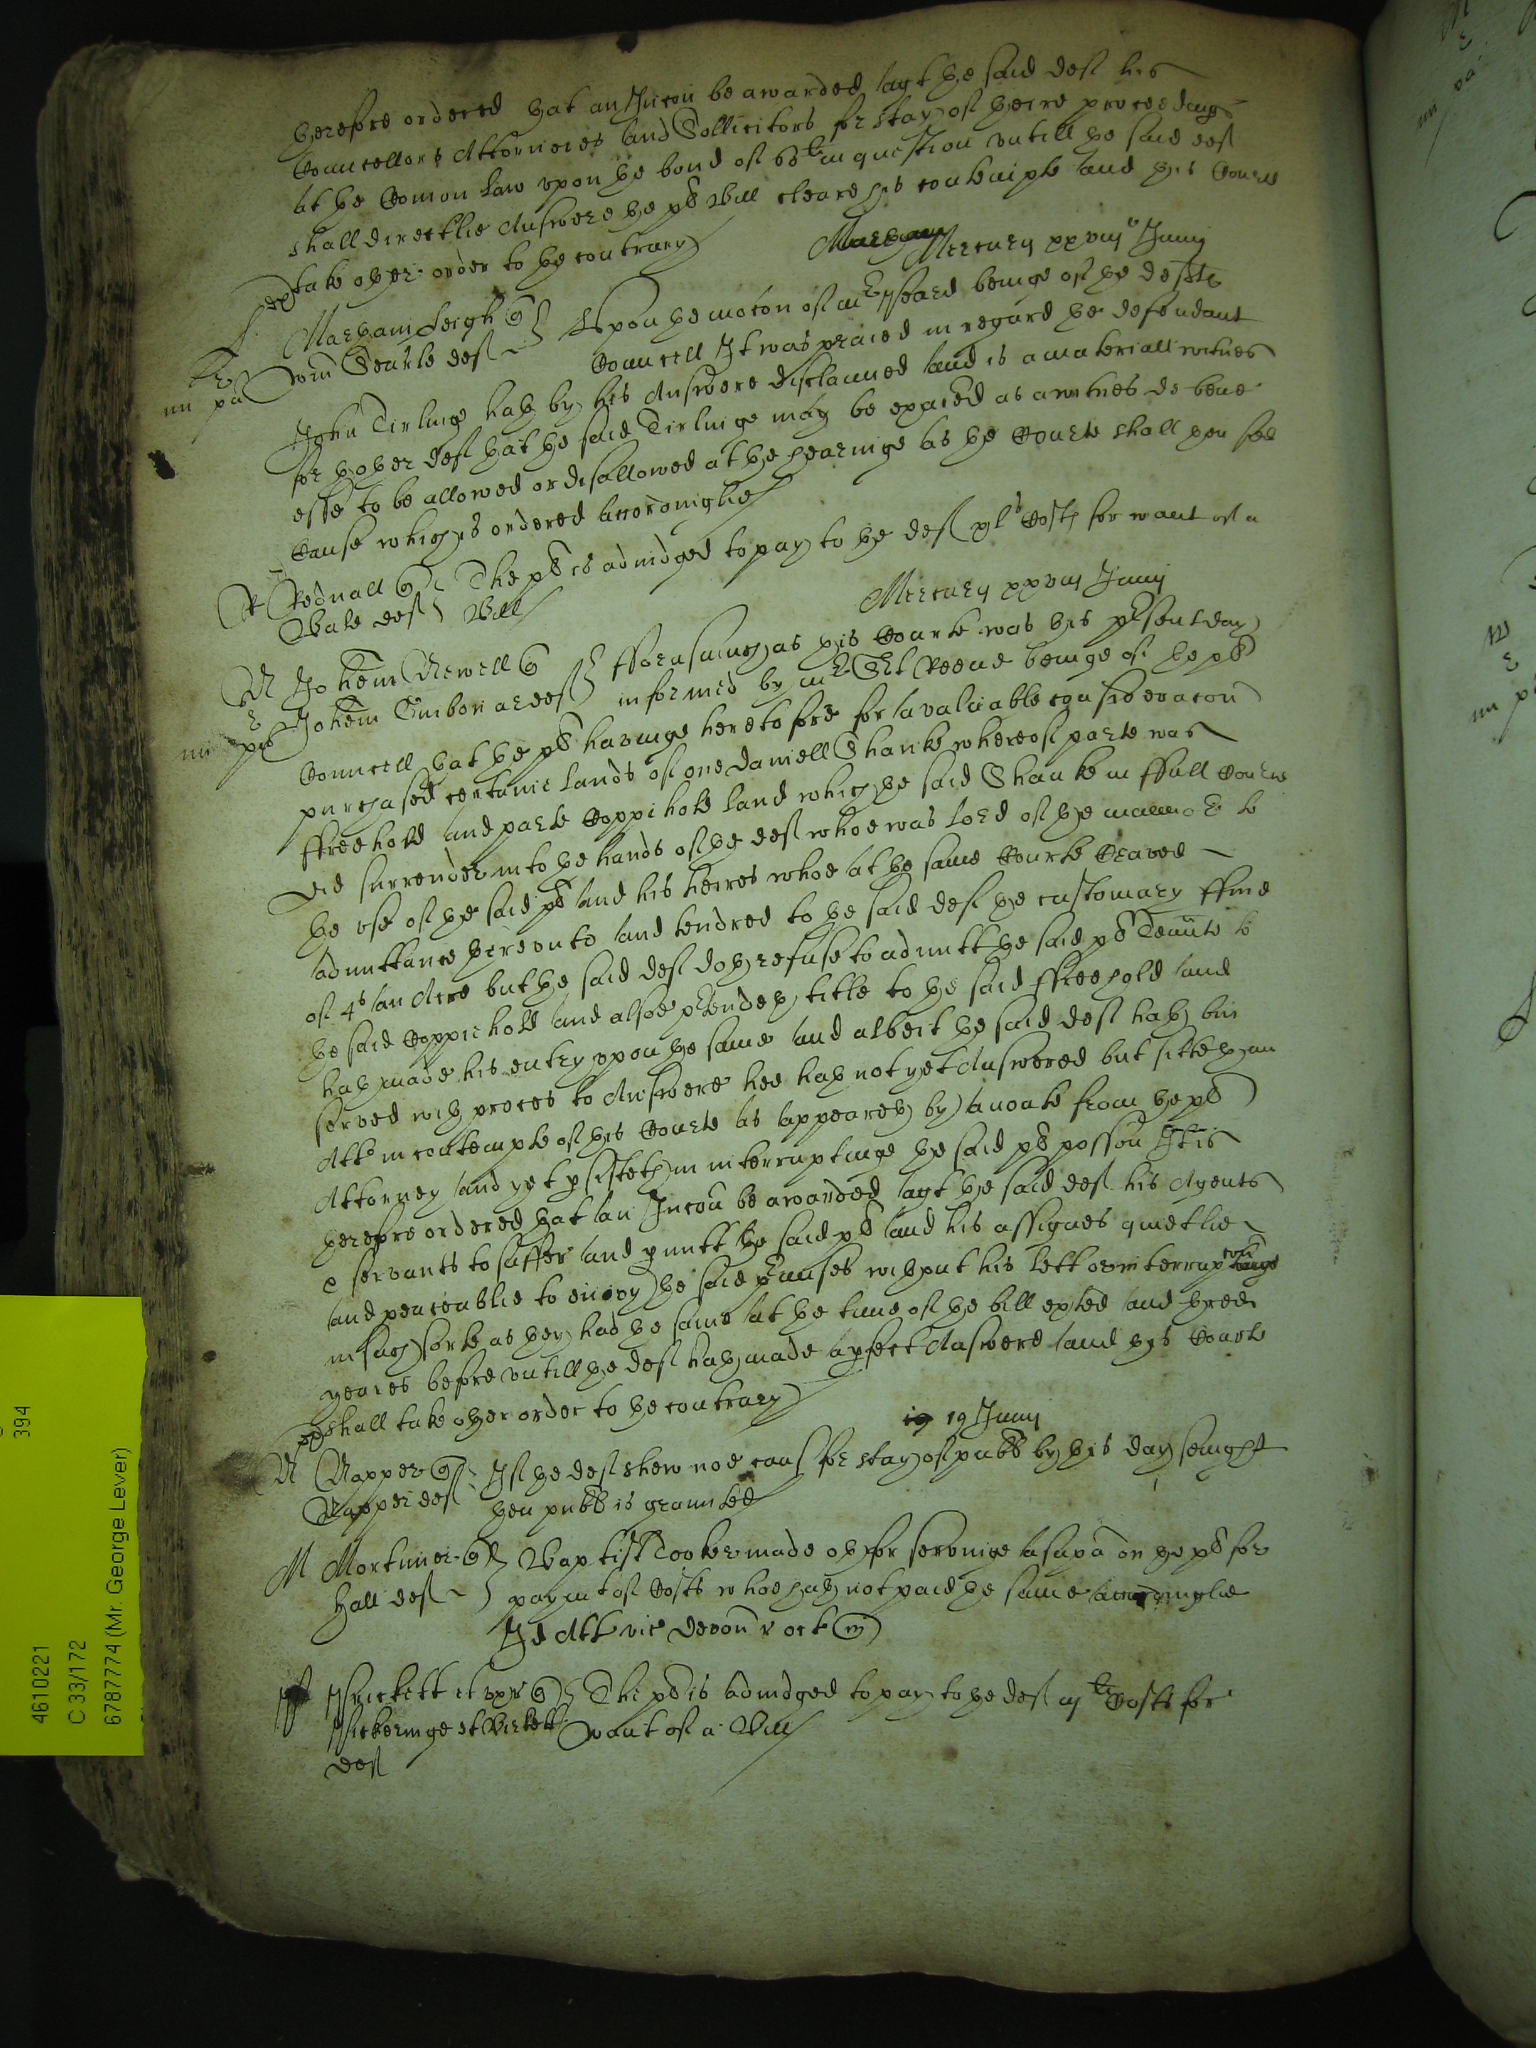 therefore ordered that an Iniccon be awarded agt the said deft his
Councellors Attorneies and Sollicitors for stay of theire proceedings
at the Comon law upon the bond of 66li in question untill the said deft
shall directlie Answere the plt Bill cleare his contempte and this Courte
take other order to the contrary
Mercurij xxviijo Junij
Marham Leigh
Willm Searle deft
Upon the mocon of mr beinge of the defts
Councell It was praied in regard the defendant
John Tirlinge hath by his Answere disclaimed and is a materiall witnes
for thother deft that the said Tirlinge may be exaied as a witnes de bene
esse to be allowed or disallowed at the hearinge as the Courte shall see
Cause which is ordered accordinglie
Rednall
Wale deft
The plt is adiudged to pay to the deft xls Costs for want of a
Bill
Mercurij xxviij Junij
Johem Newell
Johem deft
fforasmuch as this Courte was this psent day
informed by mr Sit Keene beinge of the plt
Councell that the plt havinge heretofore for a valuable consideracon
purchased certaine lands of one Daniell Shanke whereof parte was
ffreehold and parte Coppihold land which the said Shanke in ffull Courte
did surrender into the hands of the deft whoe was lord of the mannor to
the use of the said plt and his heires whoe at the same Courte Craved
admittance thereunto and tendred to the said deft the customary ffine
of 4s an Acre but the said deft doth refuse to admitt the said plt Tennte to
the said Coppiehold and alsoe ptendeth title to the said ffreehold and
hath made his entry upon the same and albeit the said deft hath bin
served with proces to Answere hee hath not yet Answered but sitteth an
Attt in contempte of this Courte as appeareth by a noate from the plt
Attorney and yet psisteth in interruptinge the said plt possion It is
therefore ordered that an Iniccon be awarded agt the said deft his Agents
& servants to suffer and pmitt the said plt and his assignes quietlie
and peaceablie to enioy the said pmises without his lett or interruption
in such sorte as they had the same at the time of the bill exhted and three
yeares before untill the deft hath made a pfect Answere and this Courte
shall take other order to the contrary
19 19 Junij
Napper
Napper deft
If the deft shew noe caus for stay of publ by this day sevinght
then publ is graunted
M Mortimer
Hall deft
Baptist Cooke made oth for servinge a supa on the plt for
paymt of Costs whoe hath not paid the same accordinglie
Id Att vic Devon
Prickett et uxr
Pickeringe et
deft
The plt is adiudged to pay to the deft Costs for
want of a Bill
394
4610221
C 33/172
6787774 (Mr. George Lever)